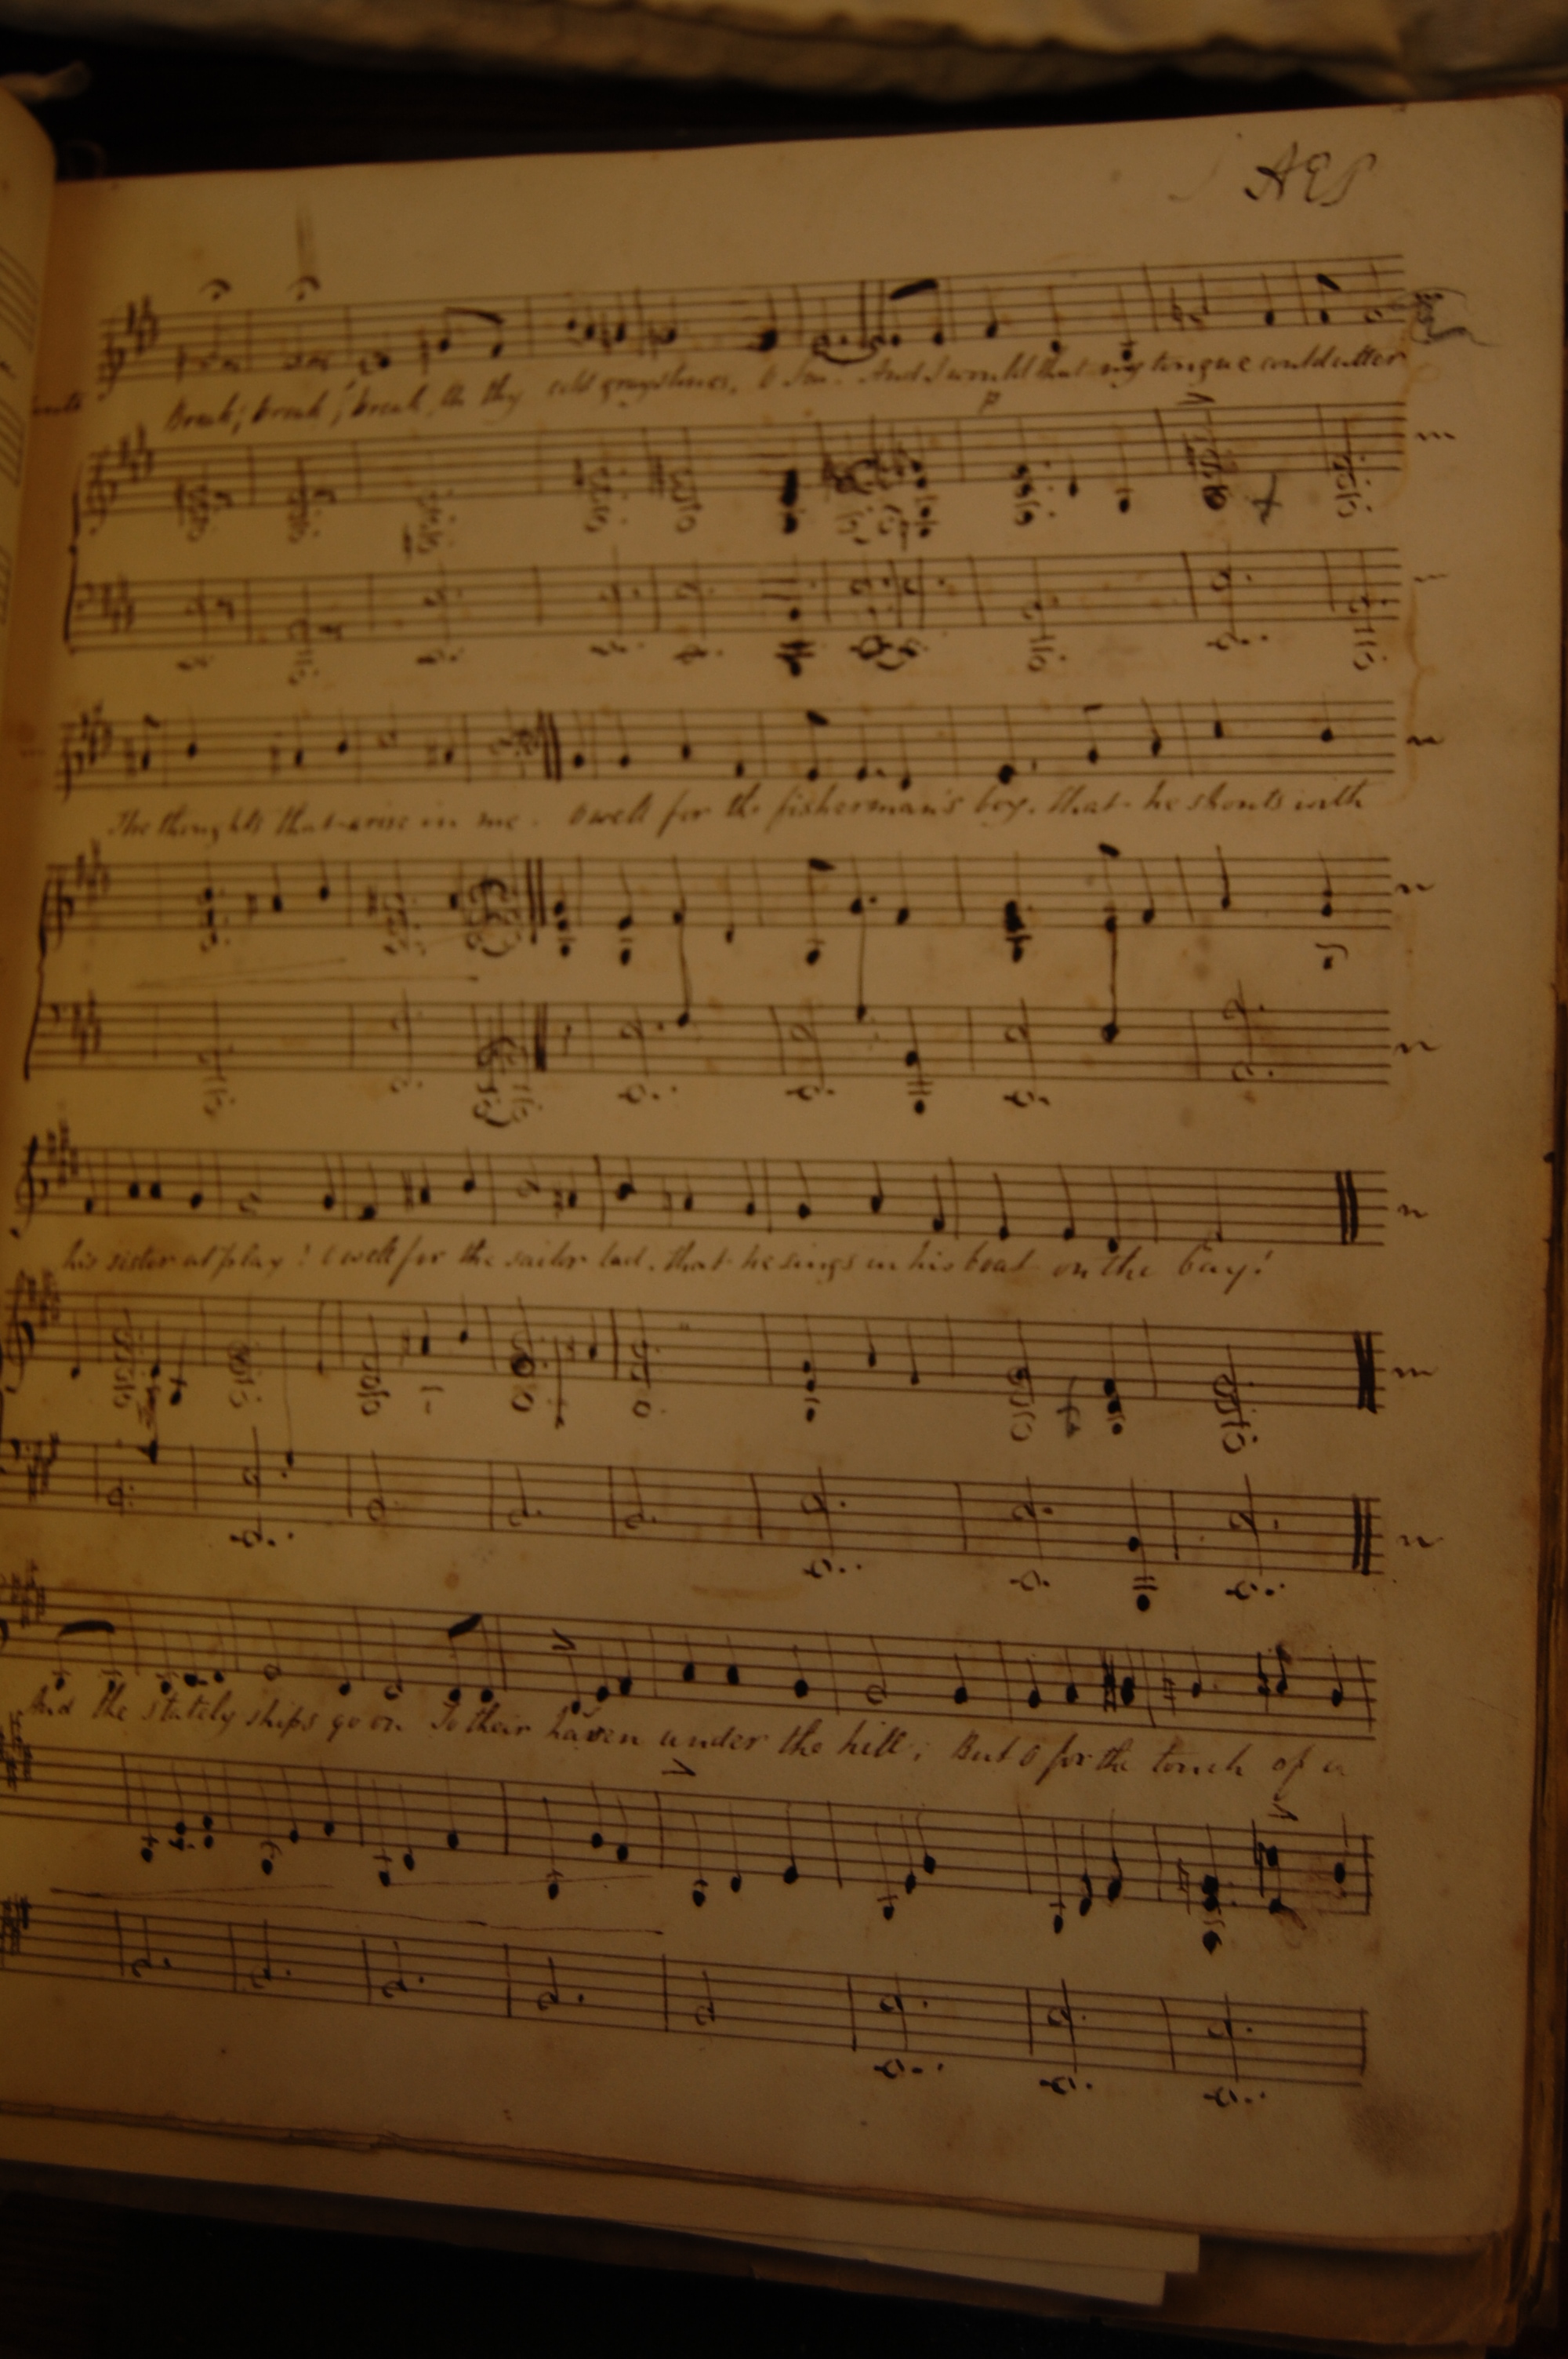 AES
Break, break, break, On thy cold gray stones, O Sea. And I would that my tongue could utter
P
The thoughts that arise in me. O well for the fisherman's boy, that he shouts with
his sister at play! O well for the sailor lad, that he sings in his boat on the bay!
And the stately ships go on To their haven under the hill; But O for the touch of a